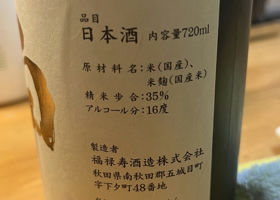 品目
日本酒 内容量720ml
原材料名:米(国産)、
米麹(国産米)
精米歩合:35%
アルコール分:16度
製造者
福禄寿酒造株式会社
秋田県南秋田郡五城目町
字下夕町48番地